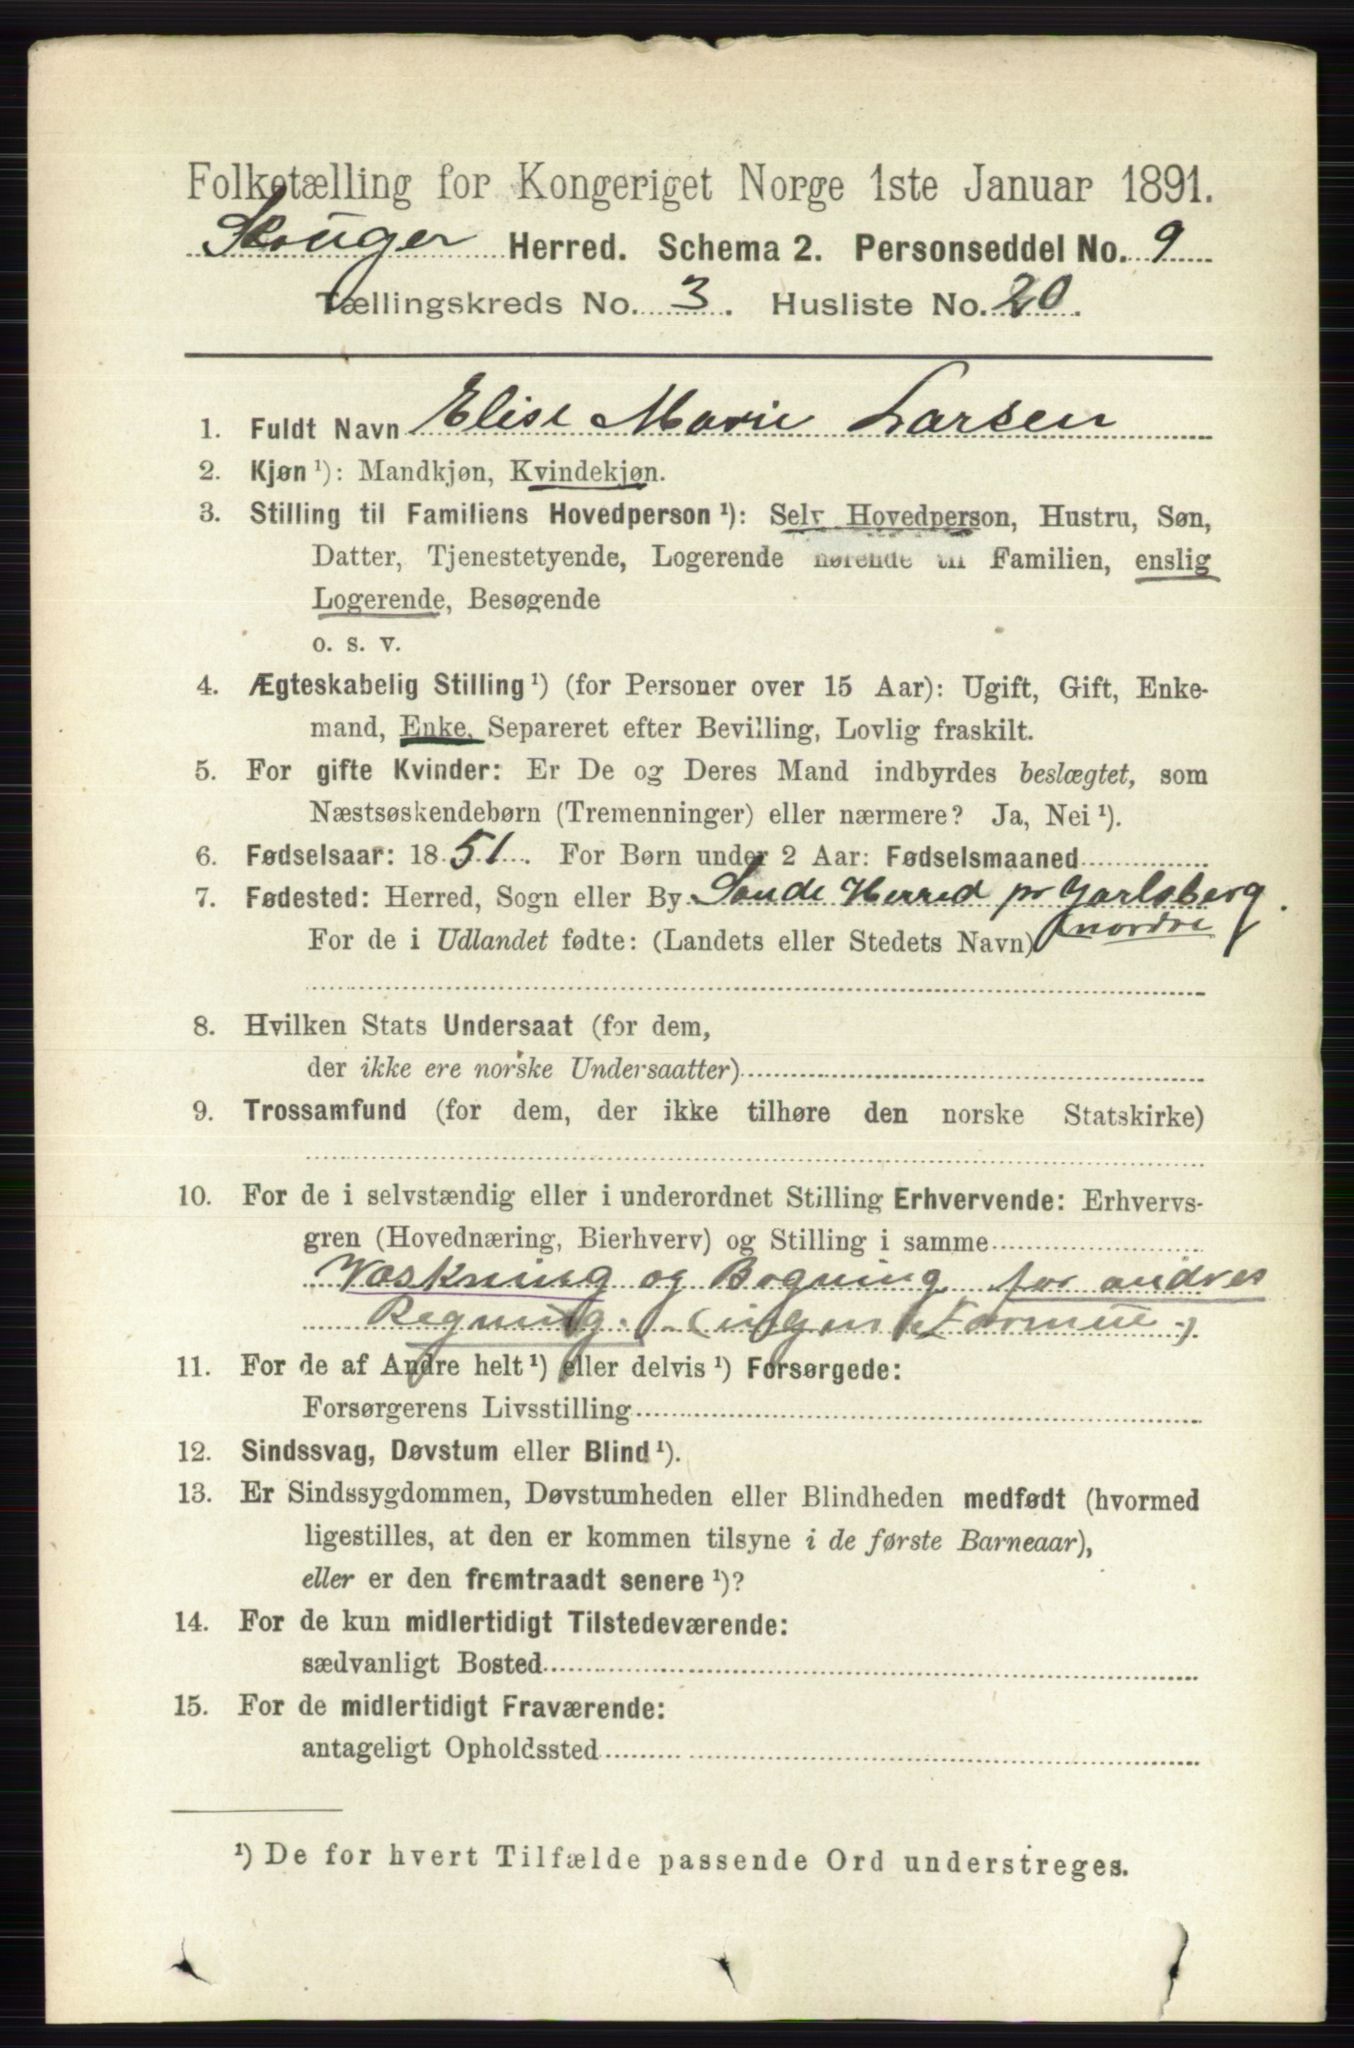 Folketælling for Kongeriget Norge 1ste Januar 1891.
Skouger Herred. Schema 2. Personseddel No. 9
Tællingskreds No. 3. Husliste No. 20.
1. Fuldt Navn Elise Marie Larsen
2. Kjøn ¹): Mandkjøn, Kvindekjøn.
3. Stilling til Familiens Hovedperson ¹): Selv Hovedperson, Hustru, Søn,
Datter, Tjenestetyende, Logerende hørende til Familien, enslig
Logerende, Besøgende
o. s. v.
4. Ægteskabelig Stilling ¹) (for Personer over 15 Aar): Ugift, Gift, Enke-
mand, Enke, Separeret efter Bevilling, Lovlig fraskilt.
5. For gifte Kvinder: Er De og Deres Mand indbyrdes beslægtet, som
Næstsøskendebørn (Tremenninger) eller nærmere? Ja, Nei ¹).
6. Fødselsaar: 1851. For Børn under 2 Aar: Fødselsmaaned
7. Fødested: Herred, Sogn eller By Sande Herred pr Jarlsberg
For de i Udlandet fødte: (Landets eller Stedets Navn) nordre
8. Hvilken Stats Undersaat (for dem,
der ikke ere norske Undersaatter)
9. Trossamfund (for dem, der ikke tilhøre den norske Statskirke)
10. For de i selvstændig eller i underordnet Stilling Erhvervende: Erhvervs-
gren (Hovednæring, Bierhverv) og Stilling i samme
Vaskning og Bagning for andres
Regning. (ingen Formue)
11. For de af Andre helt ¹) eller delvis ¹) Forsørgede:
Forsørgerens Livsstilling
12. Sindssvag, Døvstum eller Blind ¹).
13. Er Sindssygdommen, Døvstumheden eller Blindheden medfødt (hvormed
ligestilles, at den er kommen tilsyne i de første Barneaar),
eller er den fremtraadt senere ¹)?
14. For de kun midlertidigt Tilstedeværende:
sædvanligt Bosted
15. For de midlertidigt Fraværende:
antageligt Opholdssted
¹) De for hvert Tilfælde passende Ord understreges.